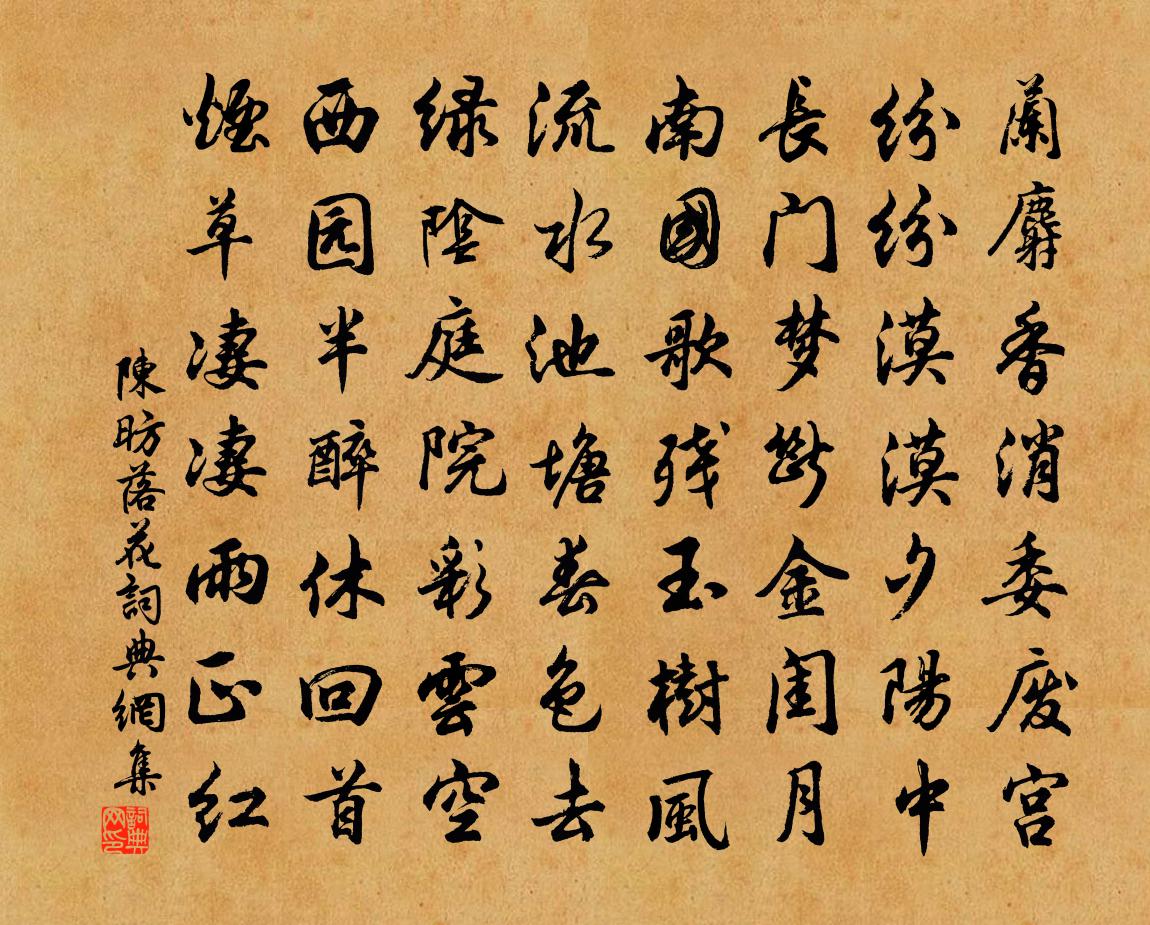 蘭麝香消委废宫
纷纷漠漠夕陽中
長门梦断金闺月
南國歌残玉樹風
流水池塘春色去
绿陰庭院彩雲空
西园半醉休回首
煙草凄凄雨正红
陳昉落花詞典網集
詞典网印